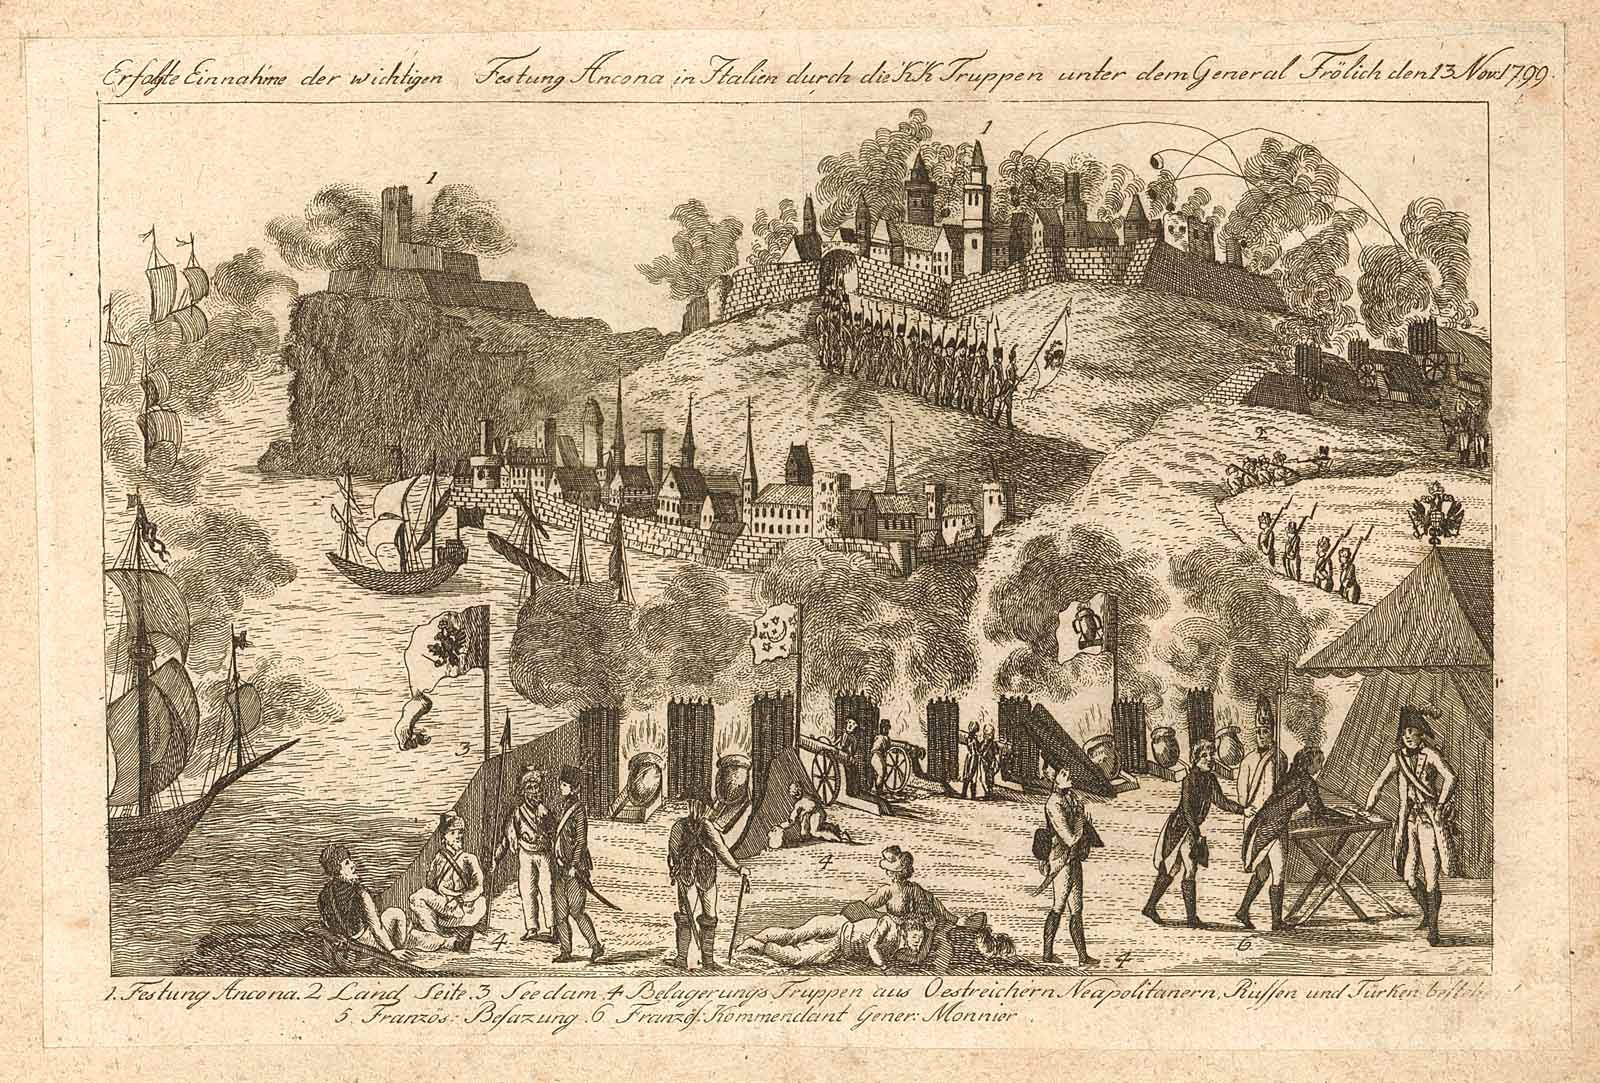 Erfolgte Einnahme der wichtigen Festung Ancona in Italien durch die KK Truppen unter dem General Frölich den 13 Nov. 1799.
1
1
2
3
4
4
4
6
1. Festung Ancona. 2 Land Seite. 3 Seedam. 4 Belagerungs Truppen aus Oestreichern Neapolitanern, Russen und Türken
5 Französ: Besazung. 6 Französ: Kommendant Gener: Monnier.